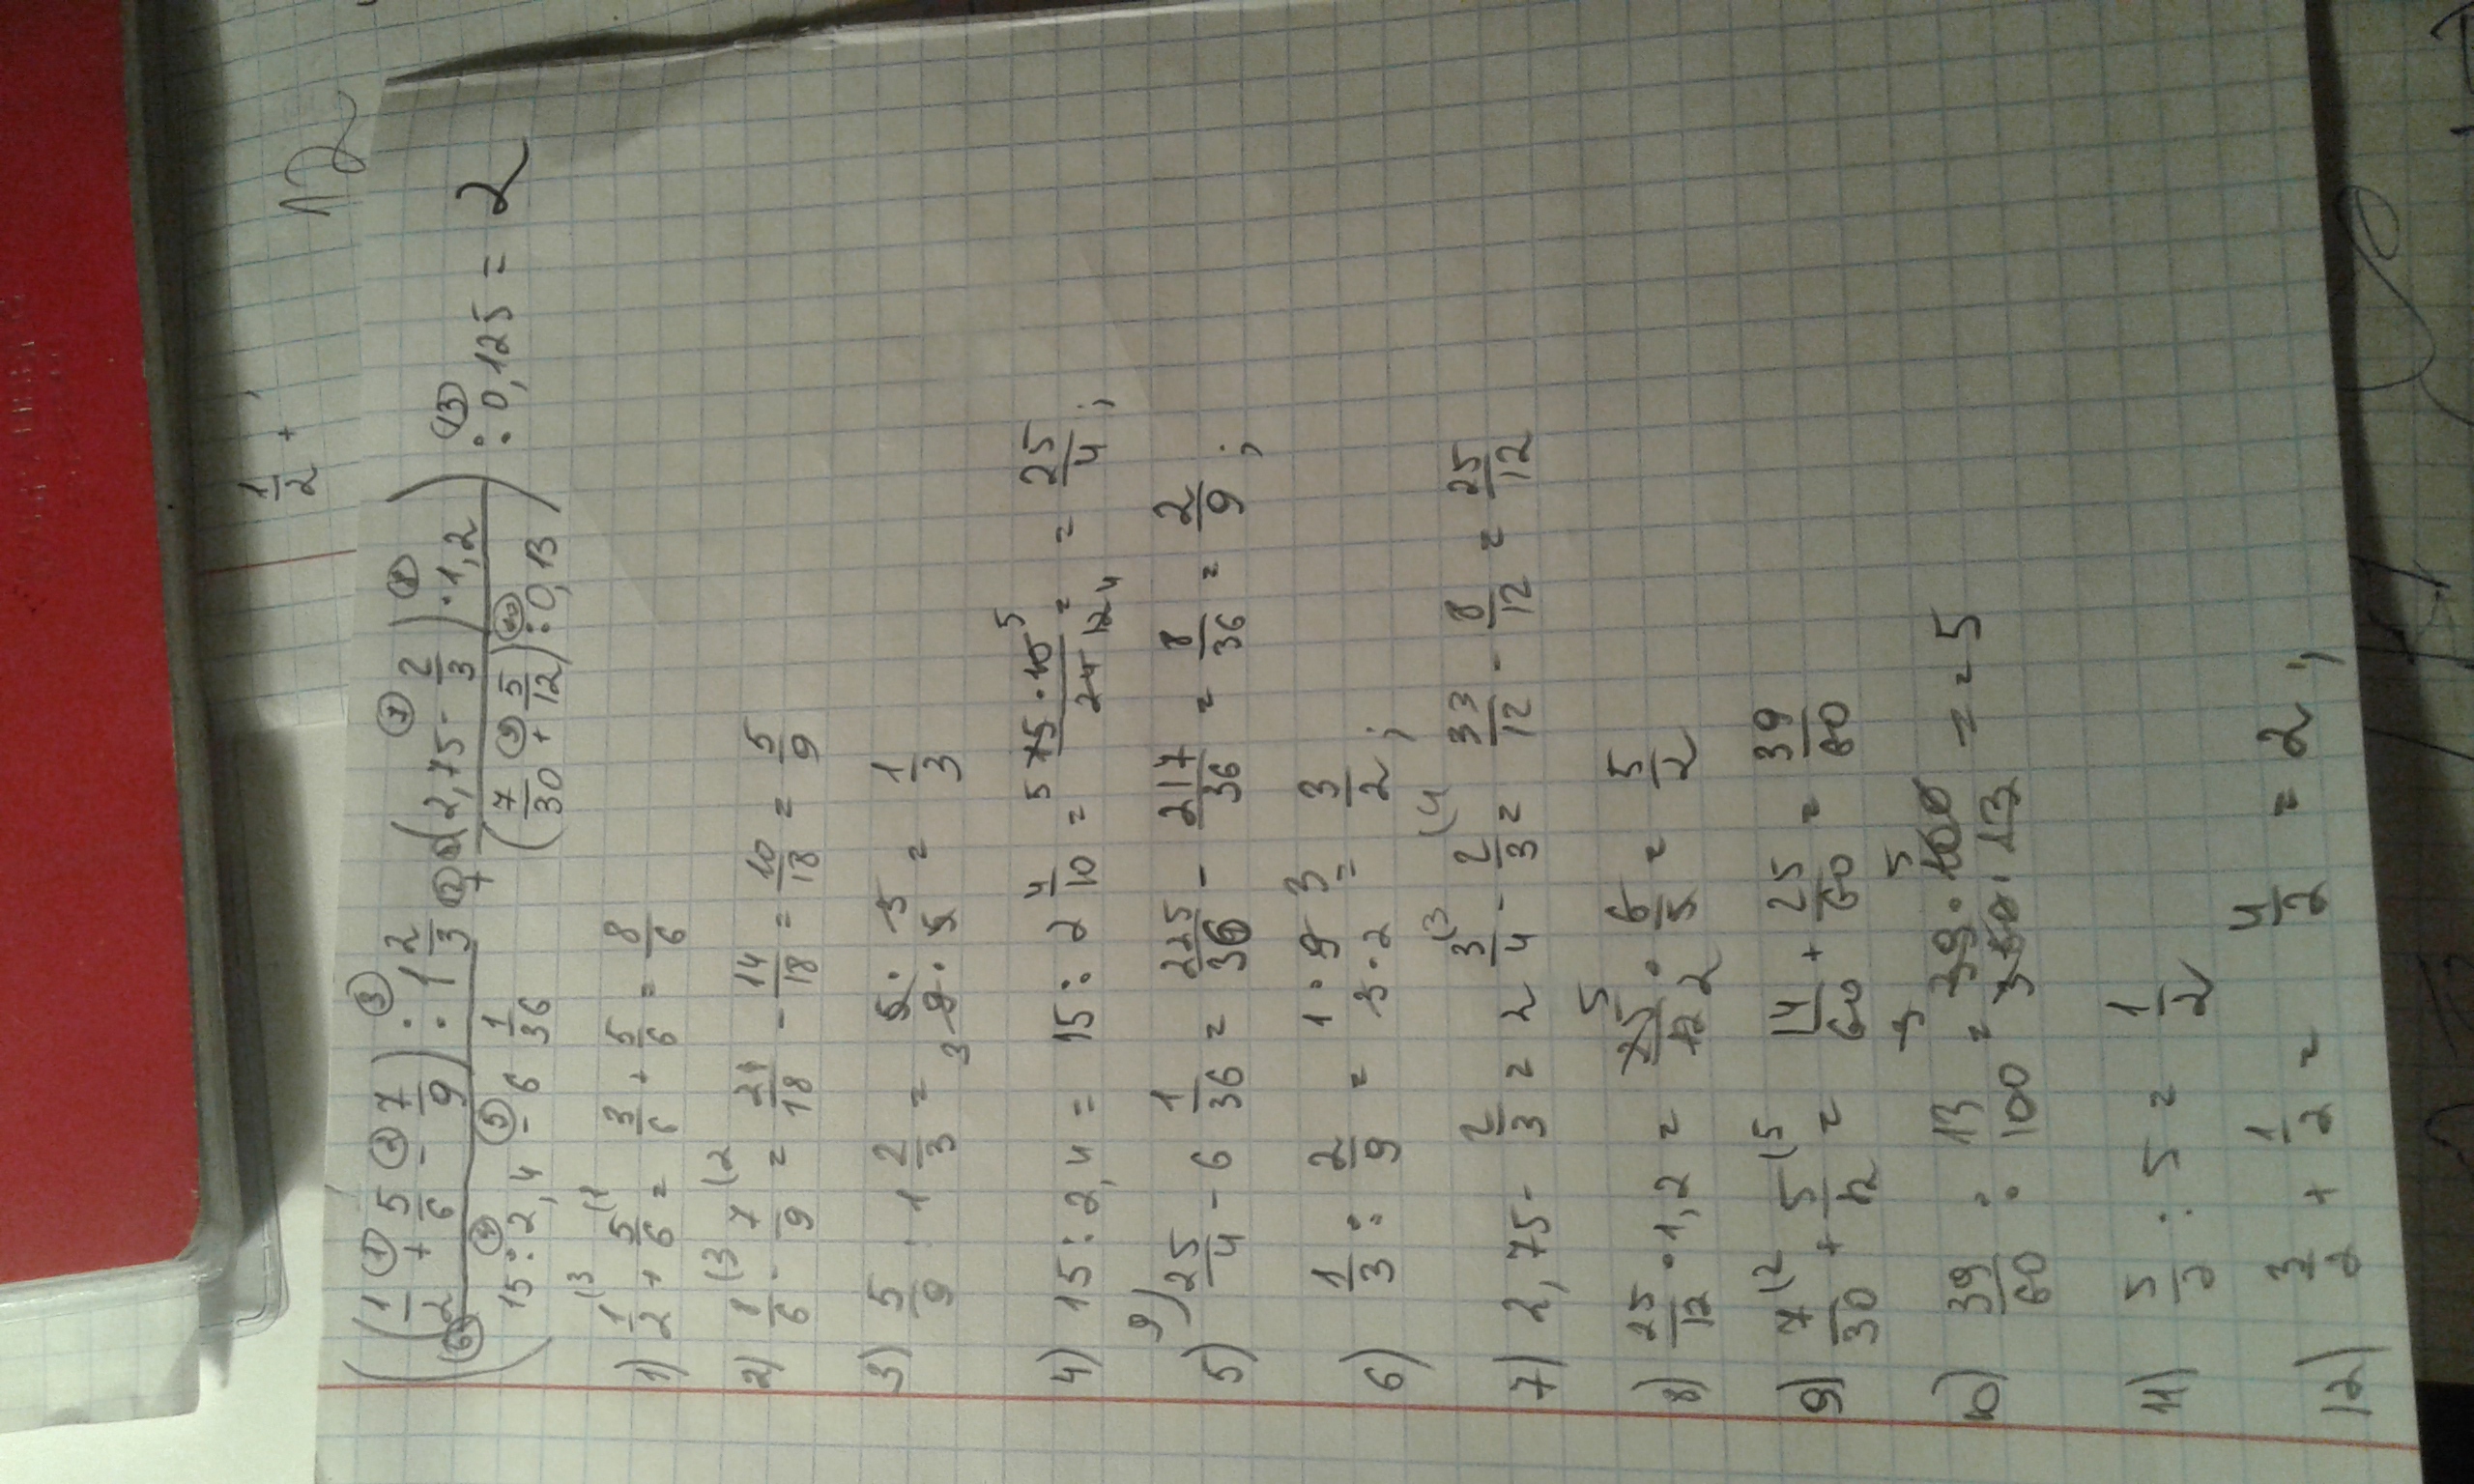 1/2 +
N2
((1/2 ① + 5/6 ② - 7/9) ③ : 1 2/3 / ⑥ 15 ④ : 2,4 ⑤ - 6 1/36 ⑫ + (2,75 ⑦ - 2/3) ⑧ · 1,2 / (7/30 ⑨ + 5/12) ⑩ : 0,13) ⑬ : 0,125 = 2
1) 1/2 (3 + 5/6 (1 = 3/6 + 5/6 = 8/6
2) 8/6 (3 - 7/9 (2 = 24/18 - 14/18 = 10/18 = 5/9
3) 5/9 : 1 2/3 = 5 · 3 / 3 9 · 5 = 1/3
4) 15 : 2,4 = 15 : 2 4/10 = 5 75 · 10 5 / 24 12 4 = = 25/4 ;
5) 9) 25/4 - 6 1/36 = 225/36 - 217/36 = 8/36 = 2/9 ;
6) 1/3 : 2/9 = 1 · 9 3 / 3 · 2 = 3/2 ;
7) 2,75 - 2/3 = 2 3/4 (3 - 2/3 (4 = 33/12 - 8/12 = 25/12
8) 25/12 · 1,2 = 25 5 / 12 2 · 6/5 = 5/2
9) 7/30 (2 + 5/12 (5 = 14/60 + 25/60 = 39/60
10) 39/60 : 13/100 = 3 39 · 100 5 / 3 60 · 13 = = 5
11) 5/2 : 5 = 1/2
12) 3/2 + 1/2 = 4/2 = 2 ;